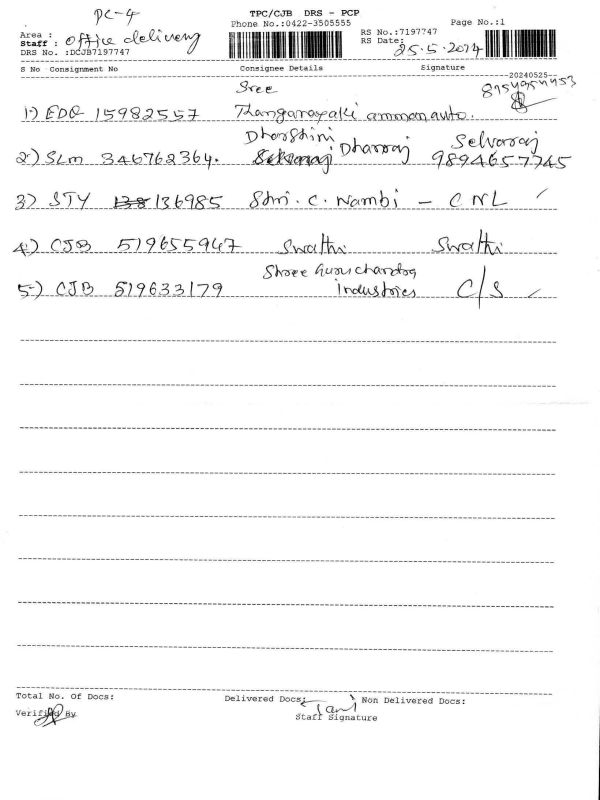 PC-4
TPC/CJB DRS - PCP
Phone No.:0422-3505555
Page No.:1
Area :
Staff : office delivery
DRS No. :DCJB7197747
RS No.:7197747
RS Date: 25.5.2024
S No Consignment No Consignee Details Signature
--20240525--
Sree 8754954453
1) EDQ 15982557 Thanganayaki amman auto.
Dharshini Selvaraj
2) SLM 346762364. Selvaraj Dharraj 9894657745
3) STY 138 136985 Shri. C. Nambi - CNL
4) CJB 519655947 Swathi Swathi
Shree Guru chandra
5) CJB 519633179 Industries C/S
Total No. Of Docs: Delivered Docs: Non Delivered Docs:
Verified By
Staff Signature